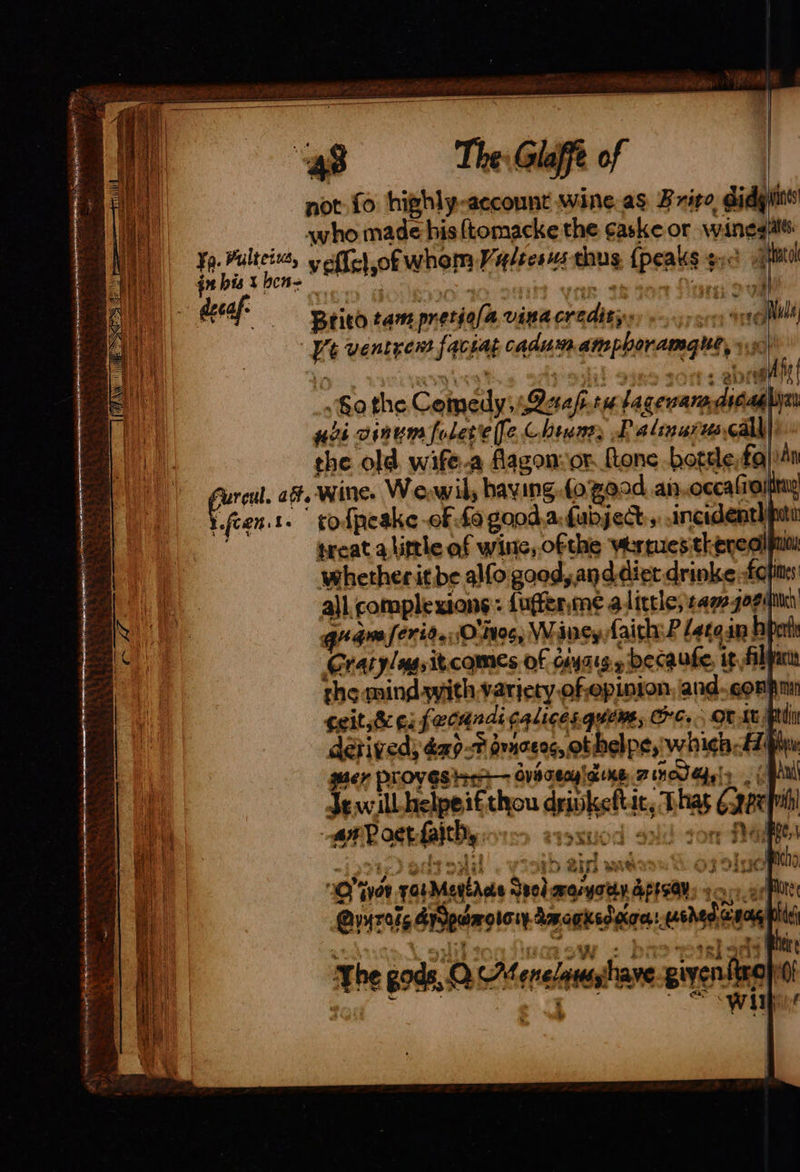 48 The Glaſſe of
not ſo highly account wine as Brito did,
who made his ſtomacke the caske or wine
veſſel, of whom Vulteius thus ſpeaks:
Ya. Vulteius,
in his 1 hen-
decaſ.
Brito tam pretioſa vina credit,
Vt ventrem faciat cadum amphoramque,
So the Comedy, Quaſi tu lagenam dicas
ubi vinum ſolet eſſe Chium, Palinurus call
the old wife a flagon or ſtone bottle, ſo
Curcul. act.
1. ſcen. 1.
wine. We wil, having ſo good an occaſion
to ſpeake of ſo good a ſubject, incidentl
treat a little of wine, of the vertues thereo
whether it be alſo good, and diet drinke fo
all complexions: ſuffer me a little, tam joc
quam ſerio. Ὀῖνος, Winey, ſaith Plato in h
Cratylus, it comes of ὀίησις, becauſe it fil
the mind with variety of opinion, and con
ceit, & ci fœcundi calices quem, &c. or it
derived, ἀπὸ τ ὀνήσεος, of helpe, which H
mer proves
Je will helpe if thou drinke ſt it, Thas
an Poet ſaith,
The gods, O Menelaus, have given
Wi